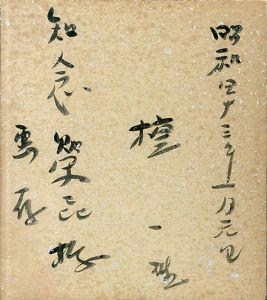 昭和四十三年一月元旦
檀一雄
知念榮喜様
恵存